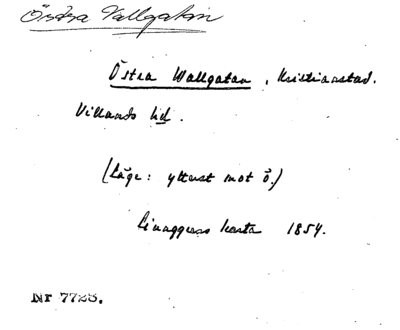 Östra Vallgatan
Östra Wallgatan, Kristianstad.
Villands hd.
(Läge: ytterst mot ö.)
karta 1854.
Nr 7723.